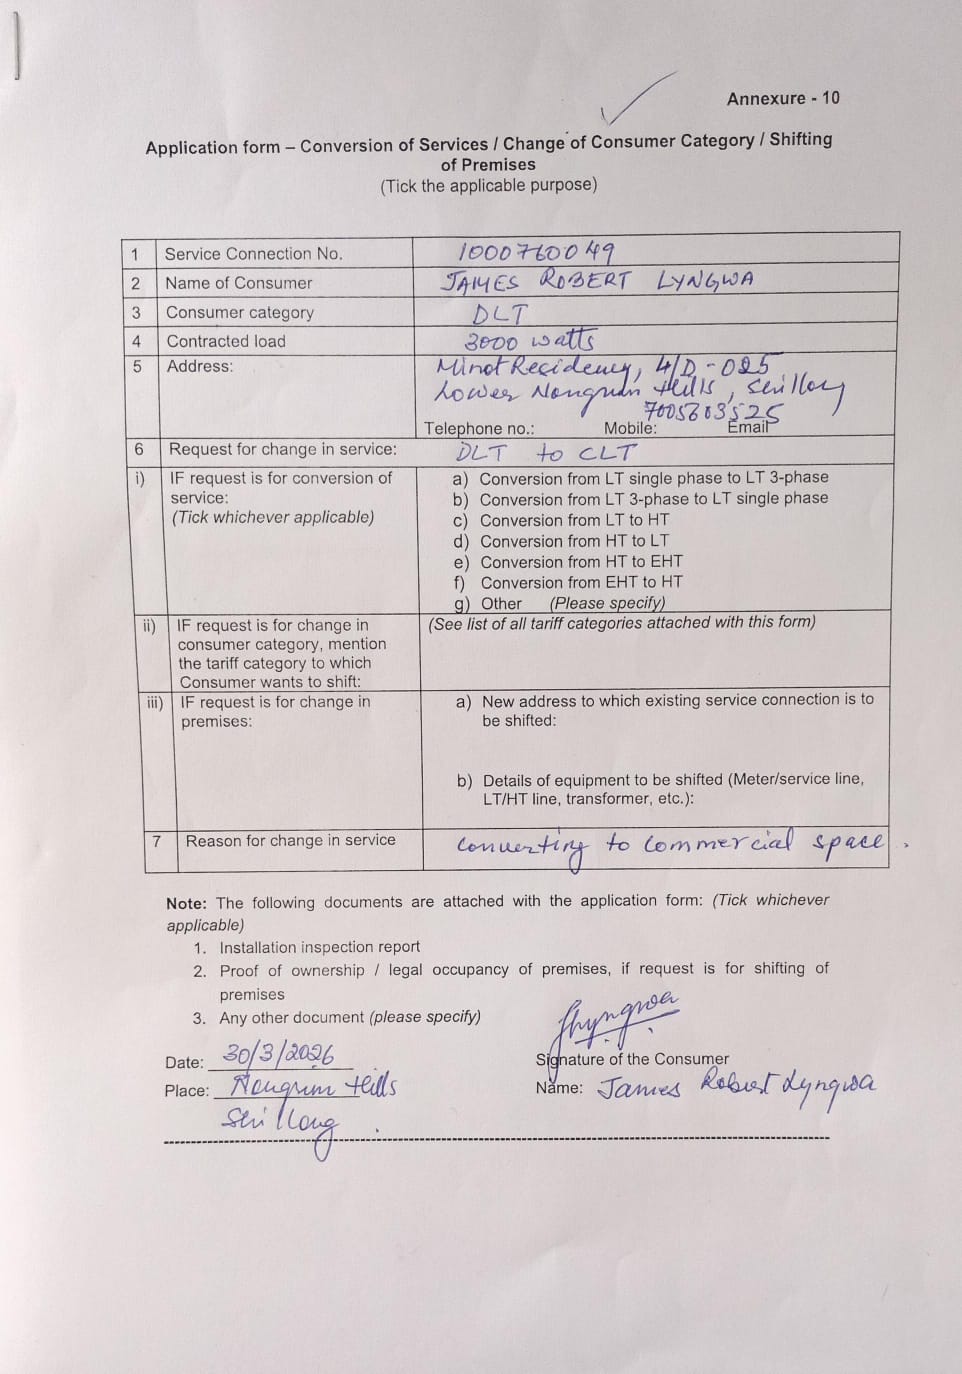 Annexure - 10
Application form – Conversion of Services / Change of Consumer Category / Shifting
of Premises
(Tick the applicable purpose)
1 Service Connection No. 1000760049
2 Name of Consumer JAMES ROBERT LYNGWA
3 Consumer category DLT
4 Contracted load 3000 watts
5 Address: Minot Residency, 4/D - 025
Lower Nongrim Hills, Shillong
7005603525
Telephone no.: Mobile: Email
6 Request for change in service: DLT to CLT
i) IF request is for conversion of
service:
(Tick whichever applicable)
a) Conversion from LT single phase to LT 3-phase
b) Conversion from LT 3-phase to LT single phase
c) Conversion from LT to HT
d) Conversion from HT to LT
e) Conversion from HT to EHT
f) Conversion from EHT to HT
g) Other (Please specify)
ii) IF request is for change in
consumer category, mention
the tariff category to which
Consumer wants to shift:
(See list of all tariff categories attached with this form)
iii) IF request is for change in
premises:
a) New address to which existing service connection is to
be shifted:
b) Details of equipment to be shifted (Meter/service line,
LT/HT line, transformer, etc.):
7 Reason for change in service converting to commercial space.
Note: The following documents are attached with the application form: (Tick whichever
applicable)
1. Installation inspection report
2. Proof of ownership / legal occupancy of premises, if request is for shifting of
premises
3. Any other document (please specify)
Lyngwa
Date: 30/3/2026
Signature of the Consumer
Place: Nongrim Hills
Shillong
Name: James Robert Lyngwa